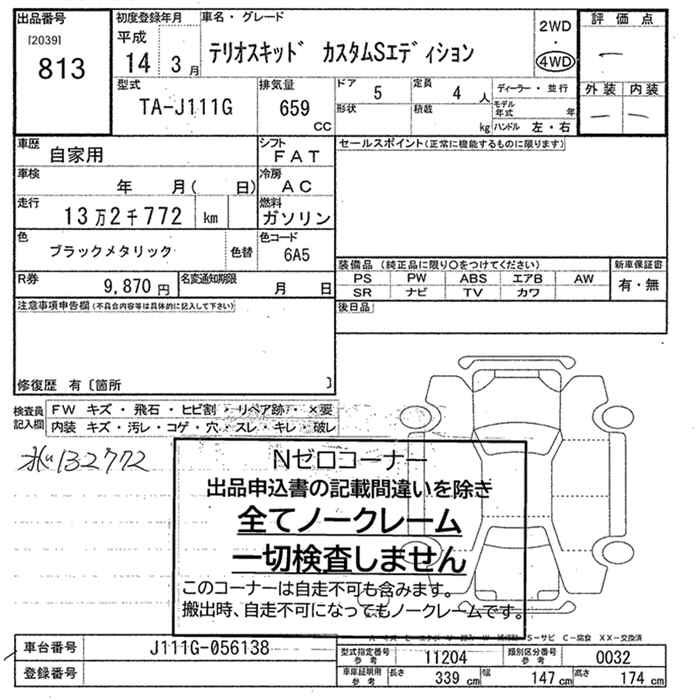 出品番号
[2039]
813
初度登録年月
平成
14年3月
車名・グレード
テリオスキッド カスタムSエディション
2WD
・
4WD
評価点
―
外装 内装
― ―
型式
TA-J111G
排気量
659
cc
ドア 5
定員 4人
形状
積載 kg
ディーラー・並行
モデル年式 年
ハンドル 左・右
車歴 自家用
シフト FAT
セールスポイント(正常に機能するものに限ります)
車検 年 月( 日)
冷房 AC
走行 13万2千772 km
燃料 ガソリン
色 ブラックメタリック 色替
色コード 6A5
R券 9,870円
名変通知期限 月 日
装備品 (純正品に限り○をつけてください)
PS PW ABS エアB AW
SR ナビ TV カワ
新車保証書
有・無
注意事項申告欄(不具合内容等は具体的に記入して下さい)
後日品
修復歴 有〔箇所 〕
検査員記入欄
FW キズ・飛石・ヒビ割・リペア跡・×要
内装 キズ・汚レ・コゲ・穴・スレ・キレ・破レ
132772
Nゼロコーナー
出品申込書の記載間違いを除き
全てノークレーム
一切検査しません
このコーナーは自走不可も含みます。
搬出時、自走不可になってもノークレームです。
S-サビ C-腐食 XX-交換済
車台番号 J111G-056138
登録番号
型式指定番号 参考 11204
類別区分番号 参考 0032
車庫証明用 参考 長さ 339cm 幅 147cm 高さ 174cm